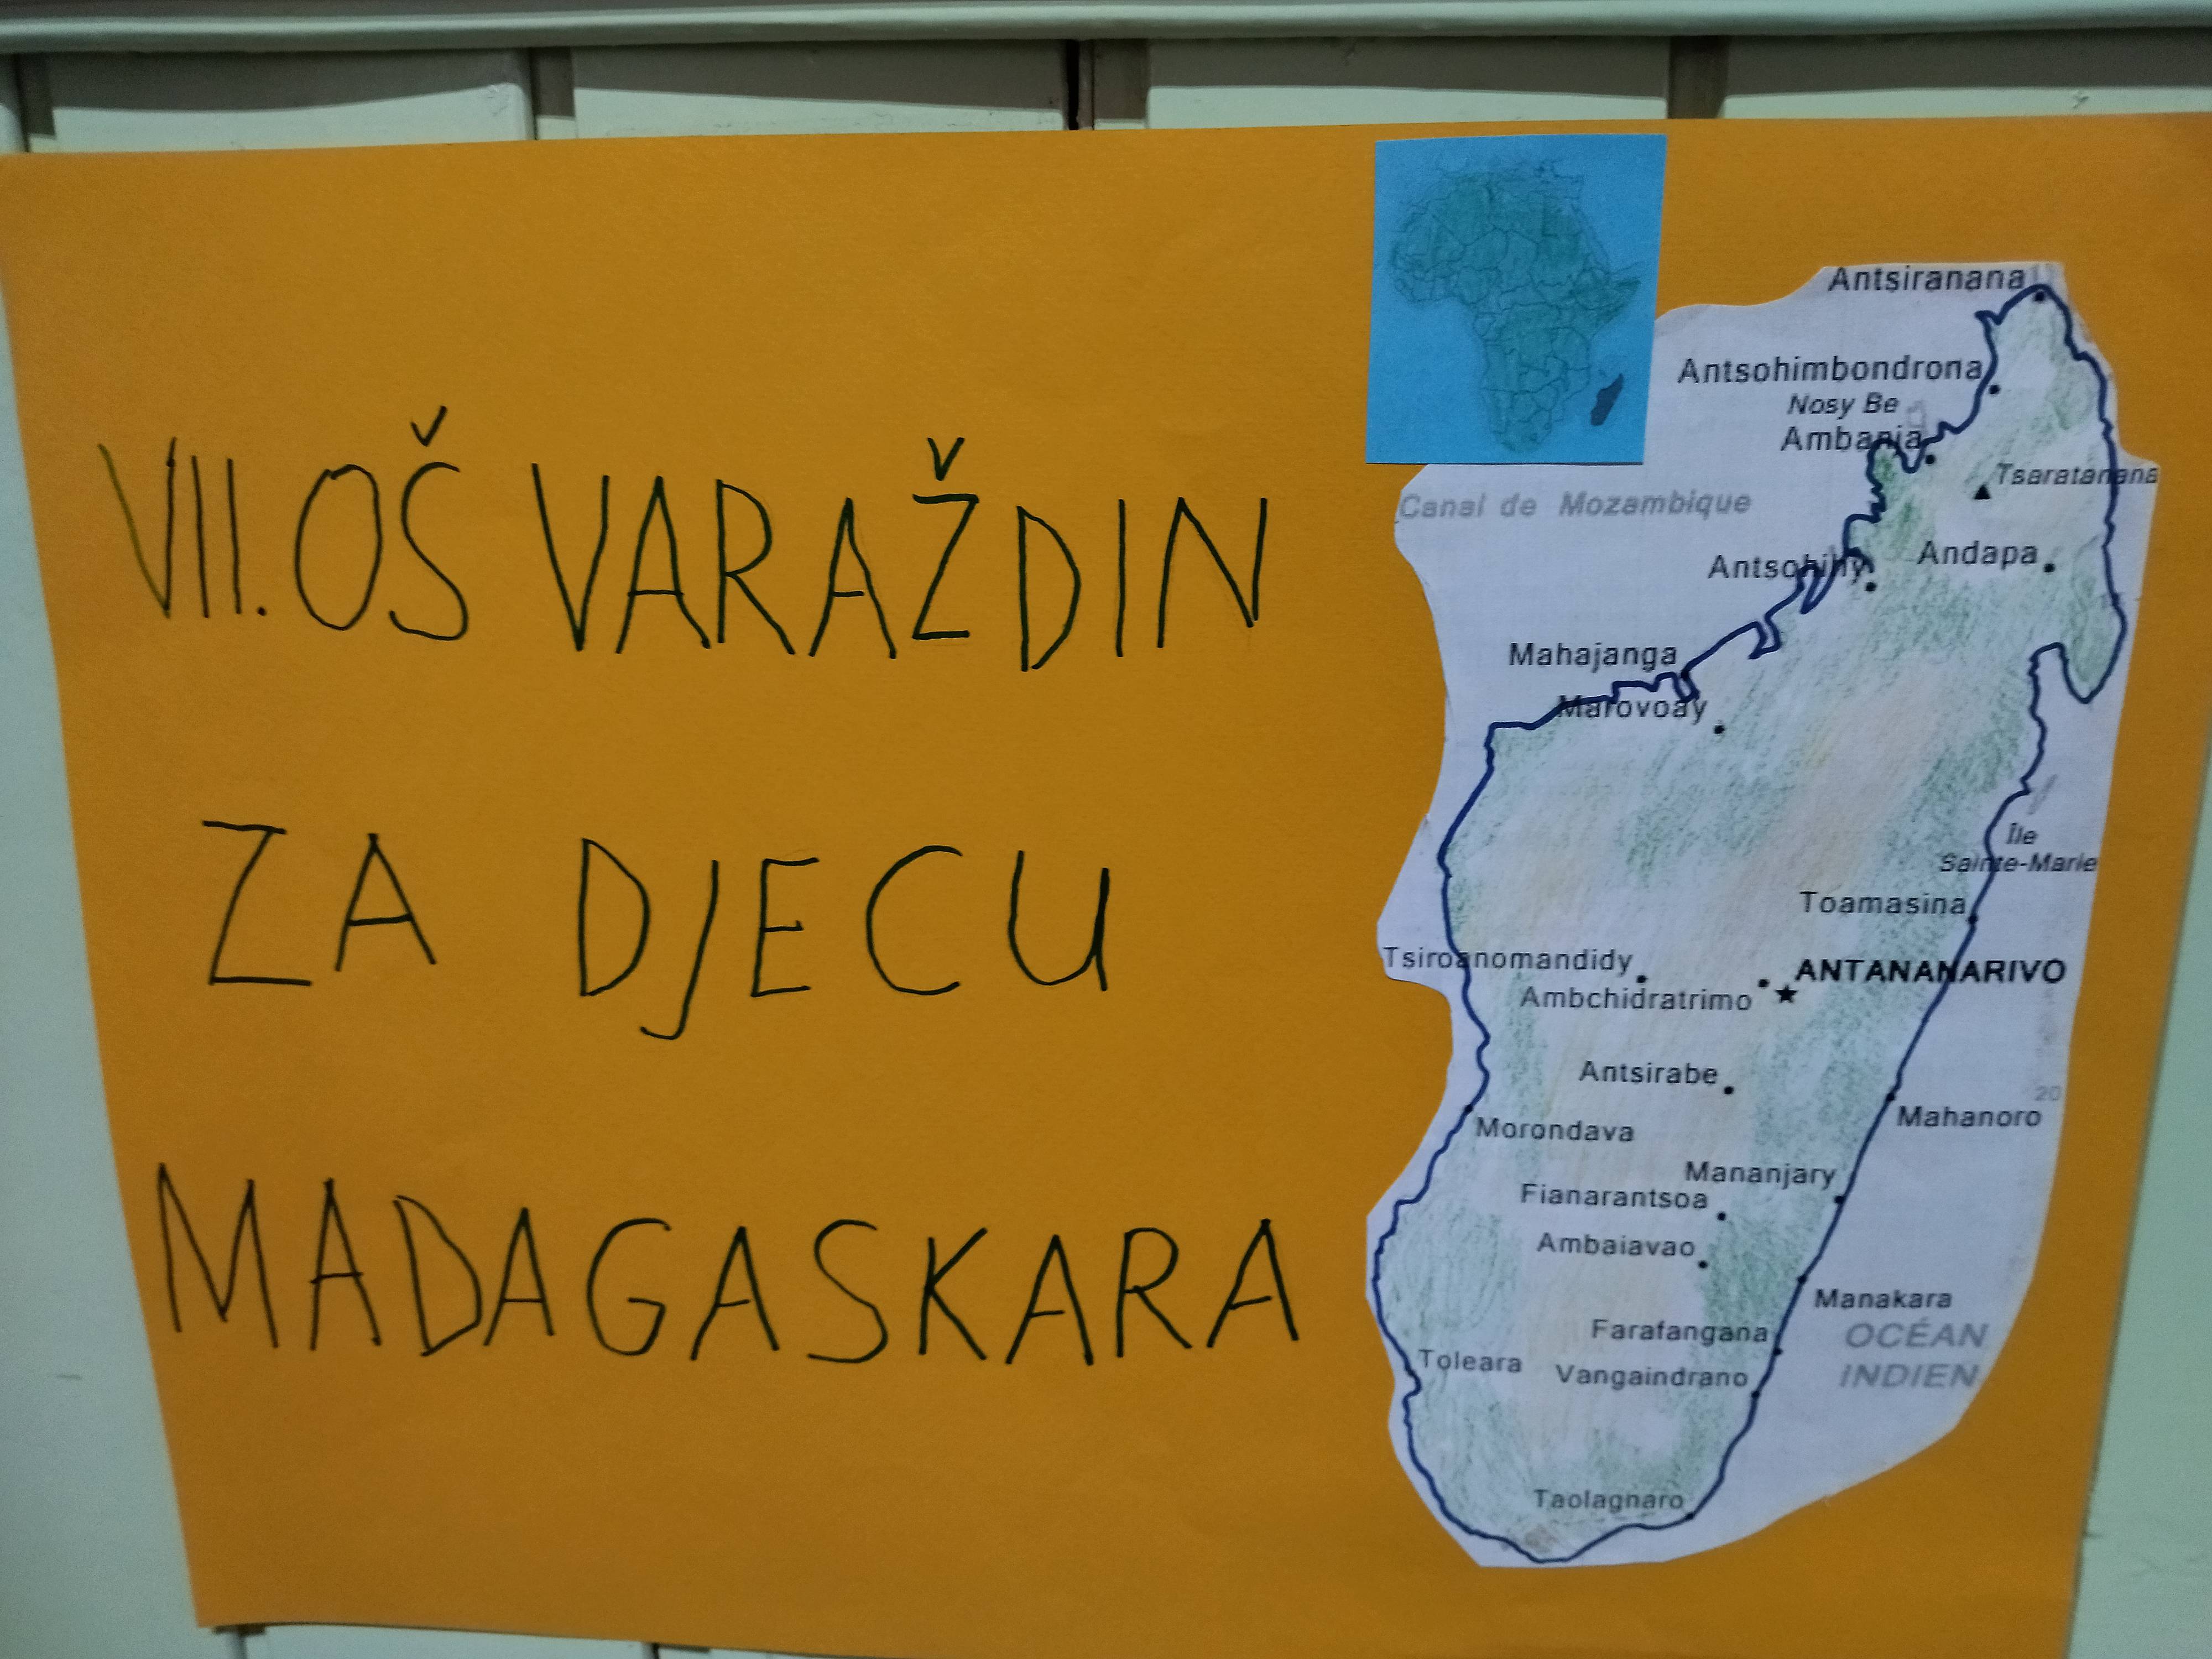 VII. OŠ VARAŽDIN
ZA DJECU
MADAGASKARA
Antsiranana
Antsohimbondrona
Nosy Be
Ambanja
Tsaratanana
Canal de Mozambique
Andapa
Antsohihy
Mahajanga
Marovoay
Île
Sainte-Marie
Toamasina
Tsiroanomandidy
ANTANANARIVO
Ambchidratrimo
Antsirabe
20
Mahanoro
Morondava
Mananjary
Fianarantsoa
Ambaiavao
Manakara
Farafangana
OCÉAN
INDIEN
Toleara
Vangaindrano
Taolagnaro